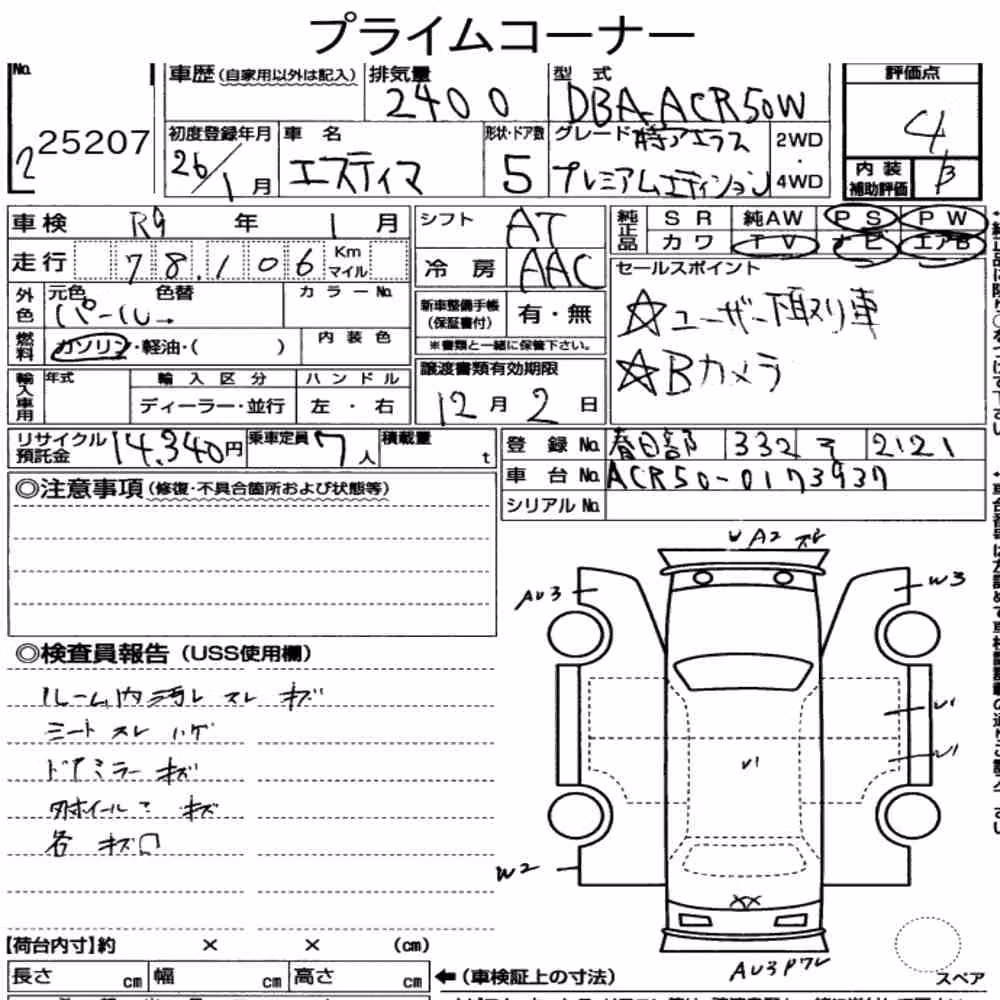 プライムコーナー
No. 2 25207
車歴(自家用以外は記入) 排気量 2400 型式 DBA-ACR50W 評価点 4
初度登録年月 26/1月 車名 エスティマ 形状・ドア数 5 グレード 特アエラス プレミアムエディション 2WD・4WD 内装補助評価 B
車検 R9年 1月 シフト AT 純正品 SR 純AW PS PW
カワ TV ナビ エアB
走行 78,106 Km マイル 冷房 AAC セールスポイント
外色 元色 パール 色替 カラーNo. 新車整備手帳(保証書付) 有・無 ☆ユーザー下取り車
※書類と一緒に保管下さい。
燃料 ガソリン・軽油・( ) 内装色 ☆Bカメラ
輸入車用 年式 輸入区分 ハンドル 譲渡書類有効期限
ディーラー・並行 左・右 12月2日
リサイクル預託金 14,340円 乗車定員 7人 積載量 t 登録No. 春日部 332 そ 2121
車台No. ACR50-0173937
◎注意事項(修復・不具合箇所および状態等) シリアルNo.
UA2
AU3 W3
◎検査員報告(USS使用欄)
ルーム内汚レ スレ キズ
シート スレ ハゲ
ドアミラー キズ
外ホイール キズ
各 キズ
U1
U1
U1
W2
XX
【荷台内寸】約 × × (cm)
長さ cm 幅 cm 高さ cm ←(車検証上の寸法)
AU3
スペア